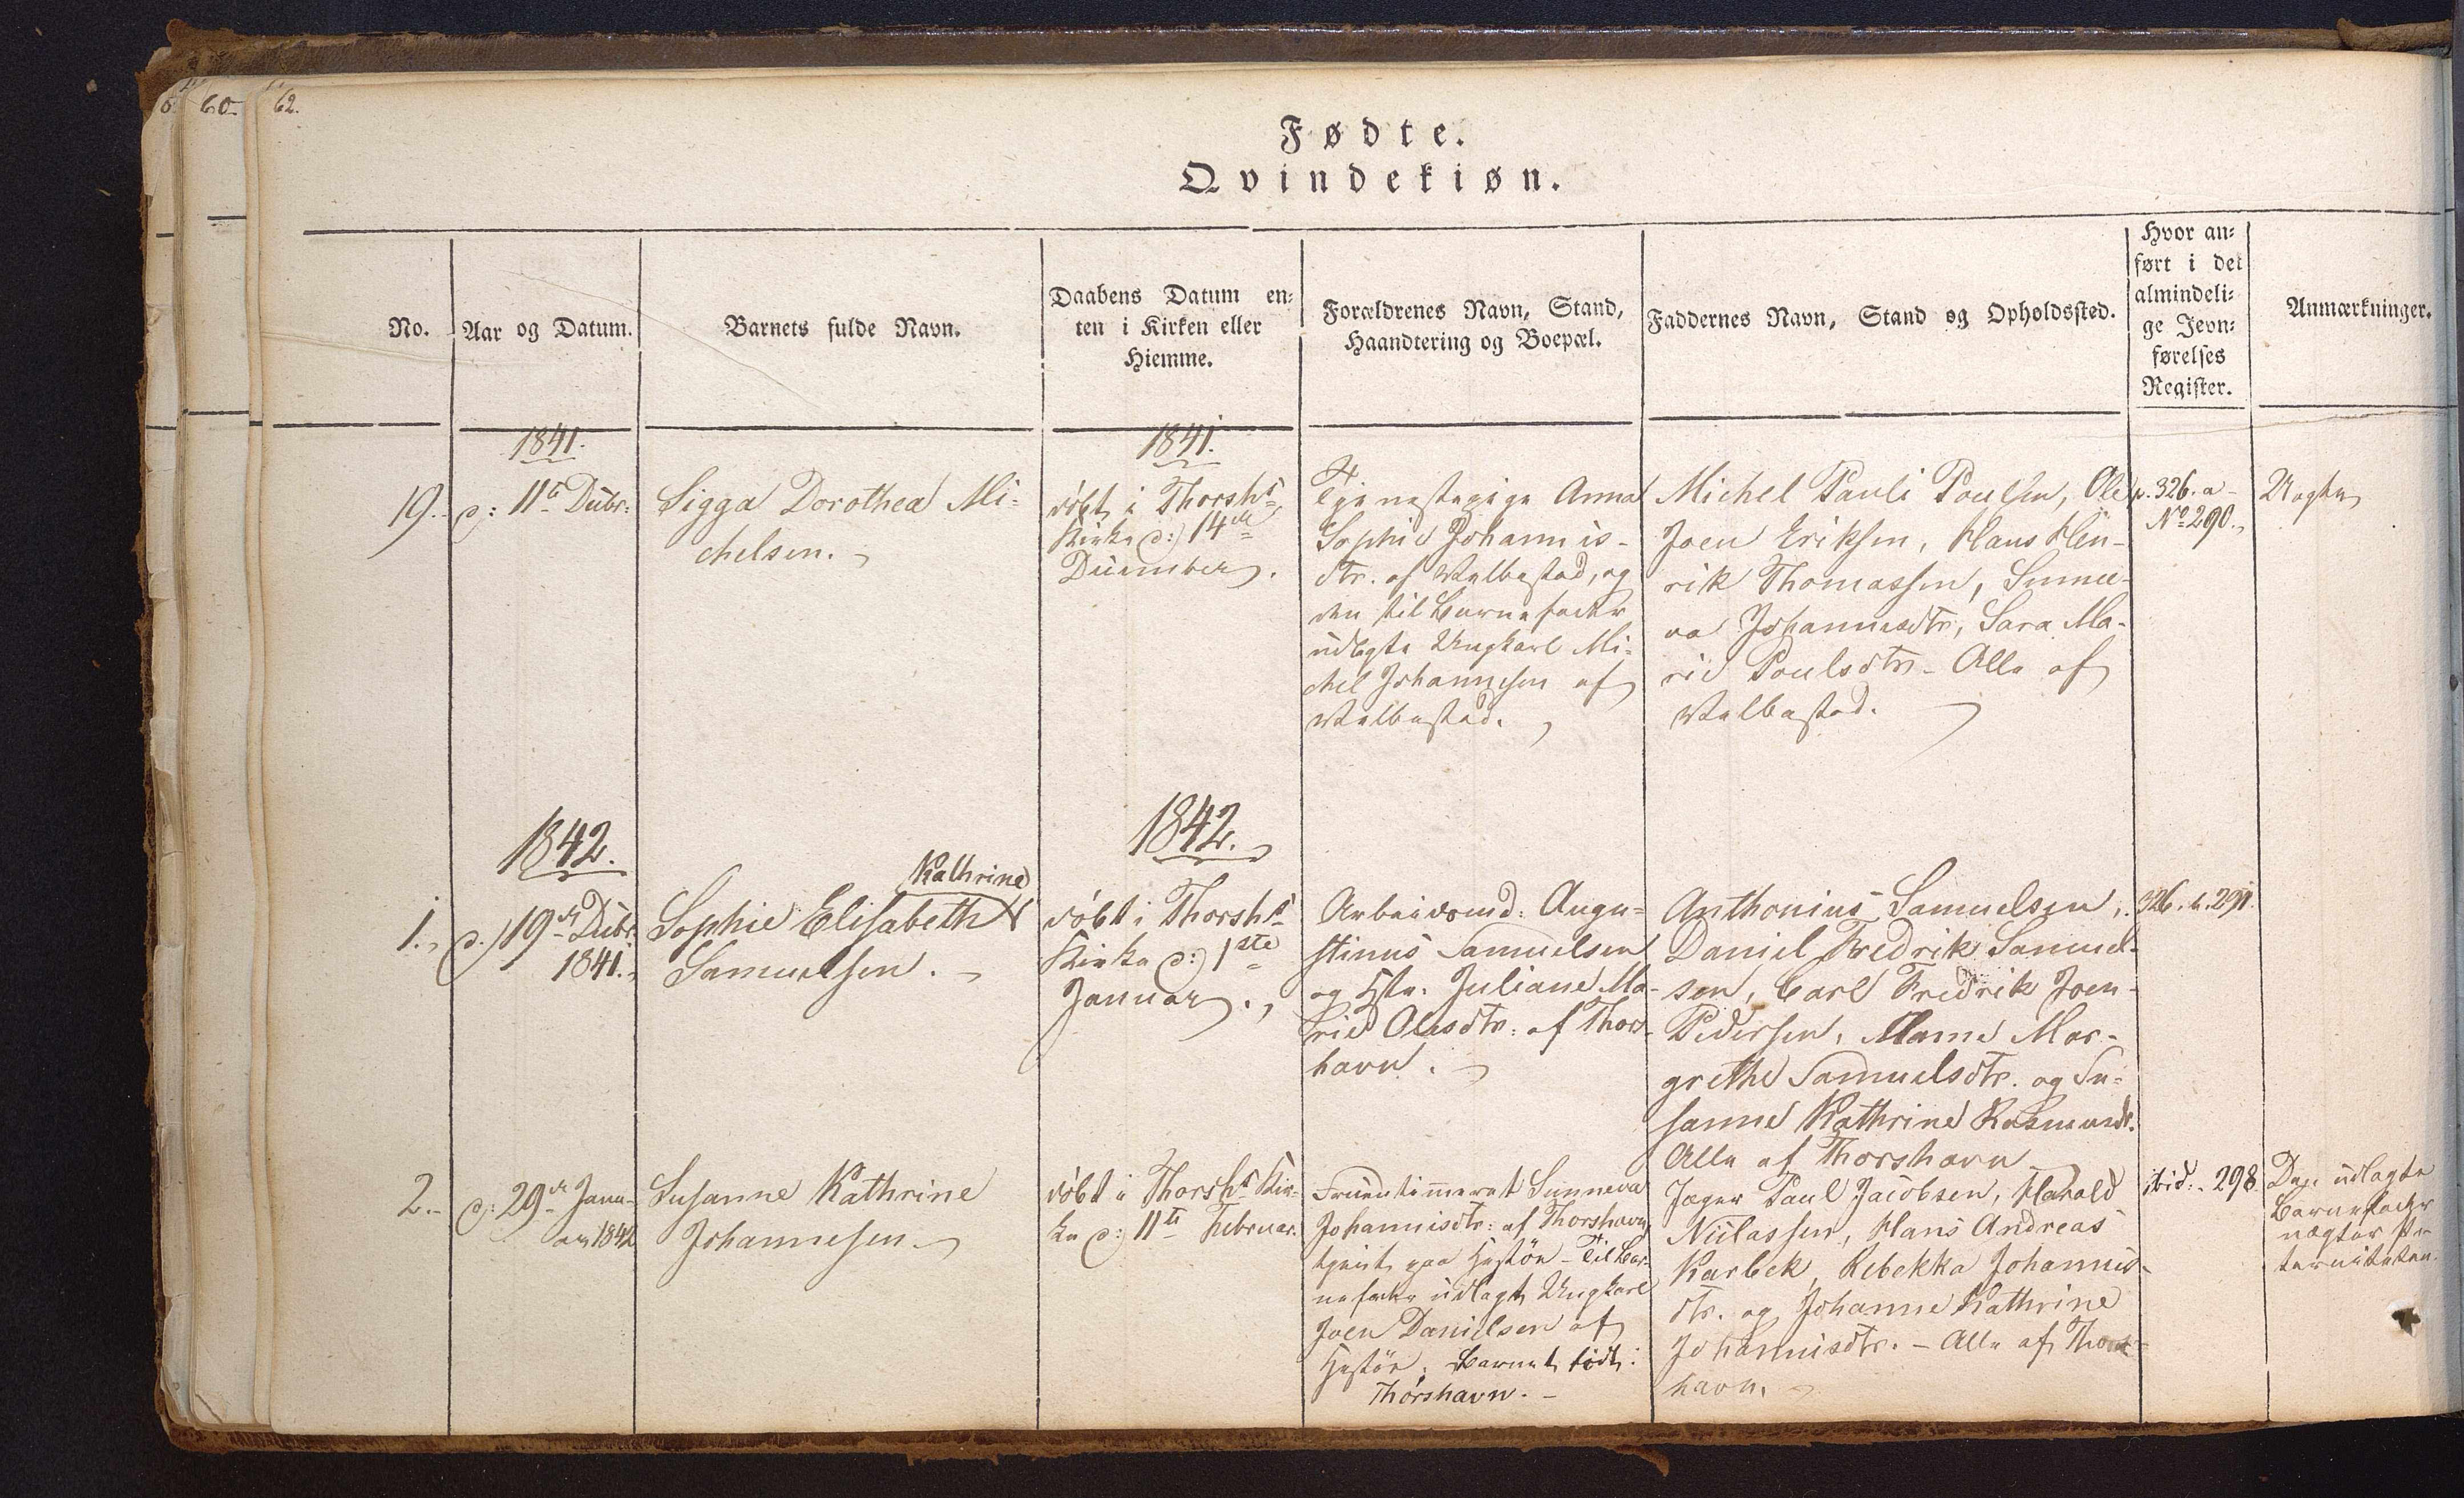 60
62.
Fødte.
Qvindekiøn.
No.
Aar og Datum.
Barnets fulde Navn.
Daabens Datum en-
ten i Kirken eller
Hiemme.
Forældrenes Navn, Stand,
Haandtering og Boepæl.
Faddernes Navn, Stand og Opholdssted.
Hvor an-
ført i det
almindeli-
ge Jevn-
førelses
Register.
Anmærkninger.
1841.
19.
d: 11te Dcbr:
Sigga Dorothea Mi-
chelsen.
1841.
döbt i Thorshs
Kirke d: 14de
December.
Tjenestepige Anna
Sophie Johannis-
dtr. af Velbestad, og
den til Barnefader
udlagte Ungkarl Mi-
chel Johannesen af
Velbestad.
Michel Pauli Poulsen, Ole
Joen Eriksen, Hans Hen-
rik Thomassen, Sunne-
va Johannesdtr, Sara Ma-
rie Poulsdtr - Alle af
Velbestad.
p. 326. a
No 290.
Uægte
1842.
1.
d. 19de Dcbr.
1841.
Kathrine
Sophie Elisabeth
Samuelsen.
1842.
döbt i Thorshs
Kirke d: 1ste
Januar.
Arbeidsmd: Augu-
stinus Samuelsen
og Hstr. Juliane Ma-
rie Olesdtr: af Thors-
havn.
Anthonius Samuelsen,
Daniel Fredrik Samuel-
sen, Carl Fredrik Joen-
Pedersen, Mar-
grethe Samuelsdtr. og Su-
sanne Kathrine
Alle af Thorshavn
326. 291.
2.
d: 29de Janu-
ar 1842
Susanne Kathrine
Johannesen
döbt i Thorshs Kir-
ke d: 11te Februar.
Fruentimeret Sunneva
Johannisdtr: af Thorshavn
tjent paa Hestöe - Til Bar-
nefader udlagt Ungkarl
Joen Danielsen af
Hestöe. Barnet födt i
Thorshavn. -
Jæger Paul Jacobsen, Harald
Niclassen, Hans Andreas
Karbek, Rebekka Johannis-
dtr. og Johanne Kathrine
Johannisdtr. - Alle af Thors-
havn.
ibid. - 298
Den udlagte
Barnefader
nægter Pa-
terniteten.